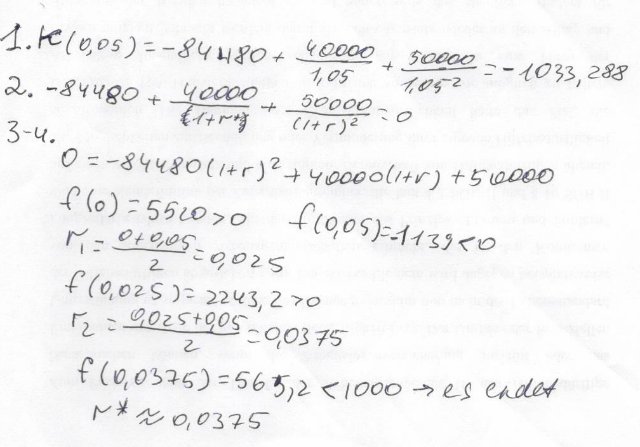 1. K(0,05) = -84480 + 40000/1,05 + 50000/1,05² = 1033,288
2. -84480 + 40000/(1+r) + 50000/(1+r)² = 0
3-4.
0 = -84480(1+r)² + 40000(1+r) + 50000
f(0) = 5520 > 0 f(0,05) = -1139 < 0
r₁ = (0+0,05)/2 = 0,025
f(0,025) = 2243,2 > 0
r₂ = (0,025+0,05)/2 = 0,0375
f(0,0375) = 565,2 < 1000 → es endet
r* ≈ 0,0375